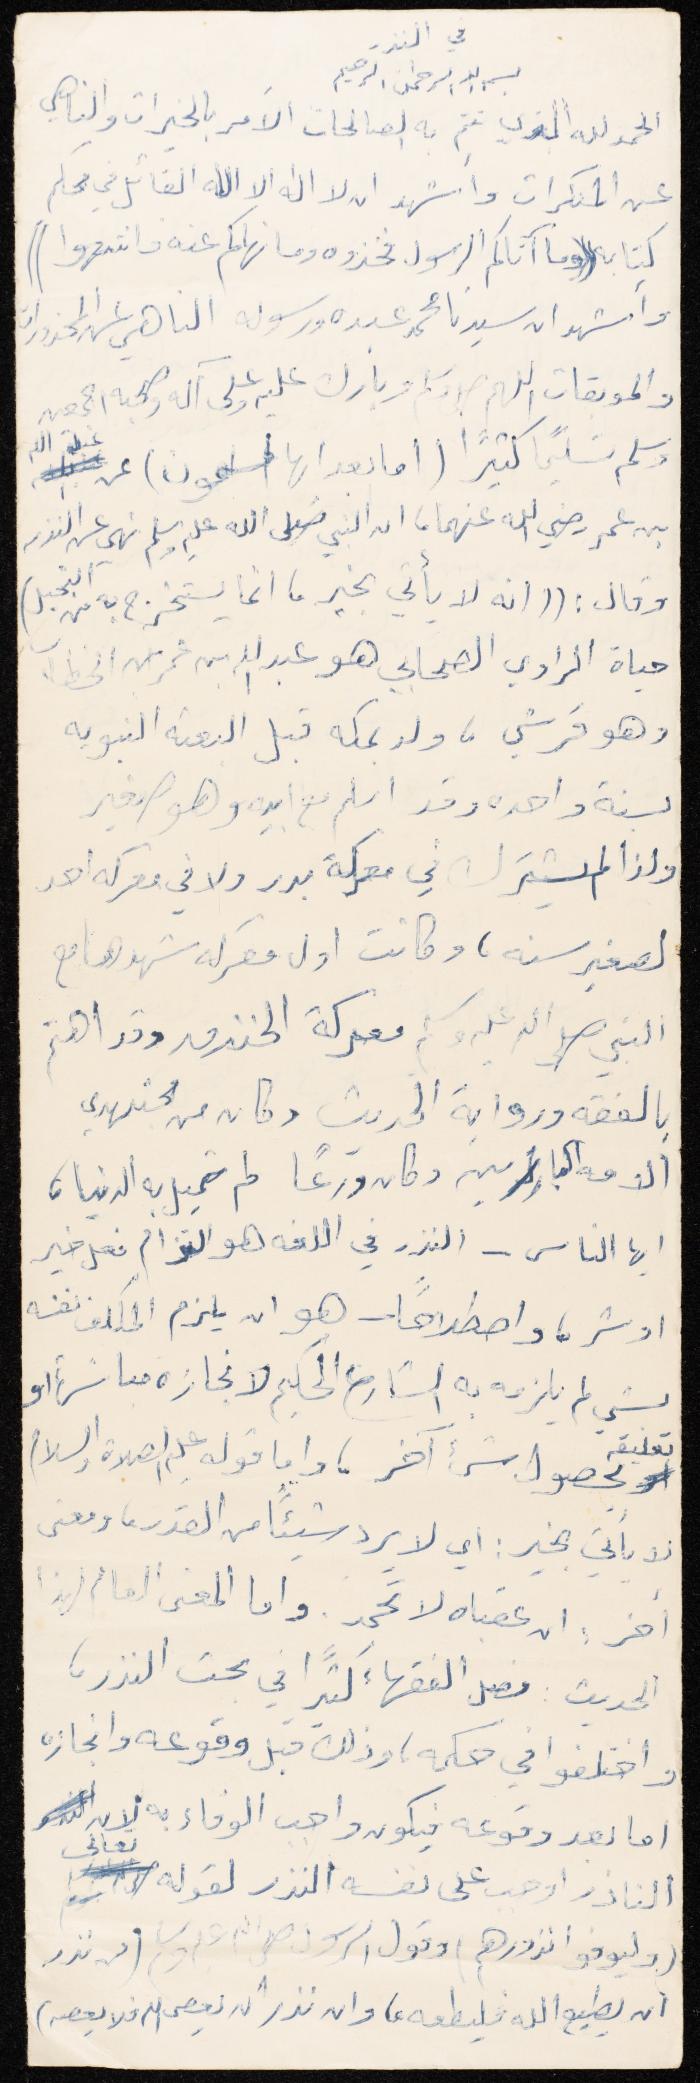 في النذر
بسم الله الرحمن الرحيم
الحمد لله الذي تتم به الصالحات الآمر بالخيرات والناهي
عن المنكرات وأشهد ان لا اله الا الله القائل في محكم
كتابه ((وما آتاكم الرسول فخذوه وما نهاكم عنه فانتهوا))
وأشهد ان سيدنا محمد عبده ورسوله الناهي عن المحذورات
والموبقات اللهم صل وسلم وبارك عليه وعلى آله وصحبه اجمعين
وسلم تسليمًا كثيرًا (اما بعد ايها المسلمون) عن عبد الله
بن عمر رضي الله عنهما، ان النبي صلى الله عليه وسلم نهى عن النذر
وقال: ((انه لا يأتي بخير، انما يستخرج به من البخيل)
حياة الراوي الصحابي هو عبد الله بن عمر بن الخطاب
وهو قرشي، ولد بمكه قبل البعثه النبويه
بسنة واحده وقد اسلم مع ابيه وهو صغير
ولذا لم يشترك في معركة بدر ولا في معركه احد
لصغير سنه، وكانت اول معركه شهدها مع
النبي صلى الله عليه وسلم معركة الخندق وقد اهتم
بالفقه ورواية الحديث وكان من مجتهدي
الامه البارزين وكان ورعًا لم تميل به الدنيا،
ايها الناس - النذر في اللغه هو التزام فعل خير
او شر، واصطلاحًا - هو ان يلزم المكلف نفسه
بشي لم يلزمه به الشارع الحكيم لانجازه مباشرة او
تعليقه بحصول شئ آخر، واما قوله عليه الصلاة والسلام
لا يأتي بخير: اي لا يرد شيئًا من القدر، ومعنى
أخر: ان عقباه لا تحمد. واما المعنى العام لهذا
الحديث: فصل الفقهاء كثيرًا في بحث النذر،
واختلفوا في حكمه، وذلك قبل وقوعه وانجازه
اما بعد وقوعه فيكون واجب الوفاء به لان
الناذر اوجب على نفسه النذر لقوله تعالى
(وليوفوا نذورهم) وقول الرسول صلى الله عليه وسلم (من نذر
أن يطيع الله فليطعه، وان نذر أن يعصي الله فلا يعصه)